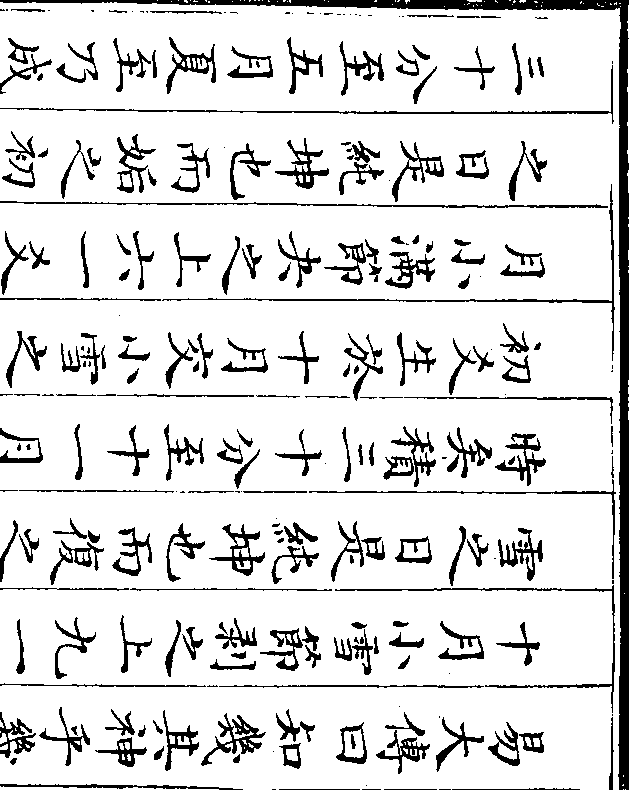 易大傳曰知幾其神乎幾
十月小雪節剝之上九一
雪之日是純坤也而復之
時矣積三十分至十一月
初爻生於十月交小雪之
月小滿節夬之上六一爻
之日是純坤也而姤之初
三十分至五月夏至乃成